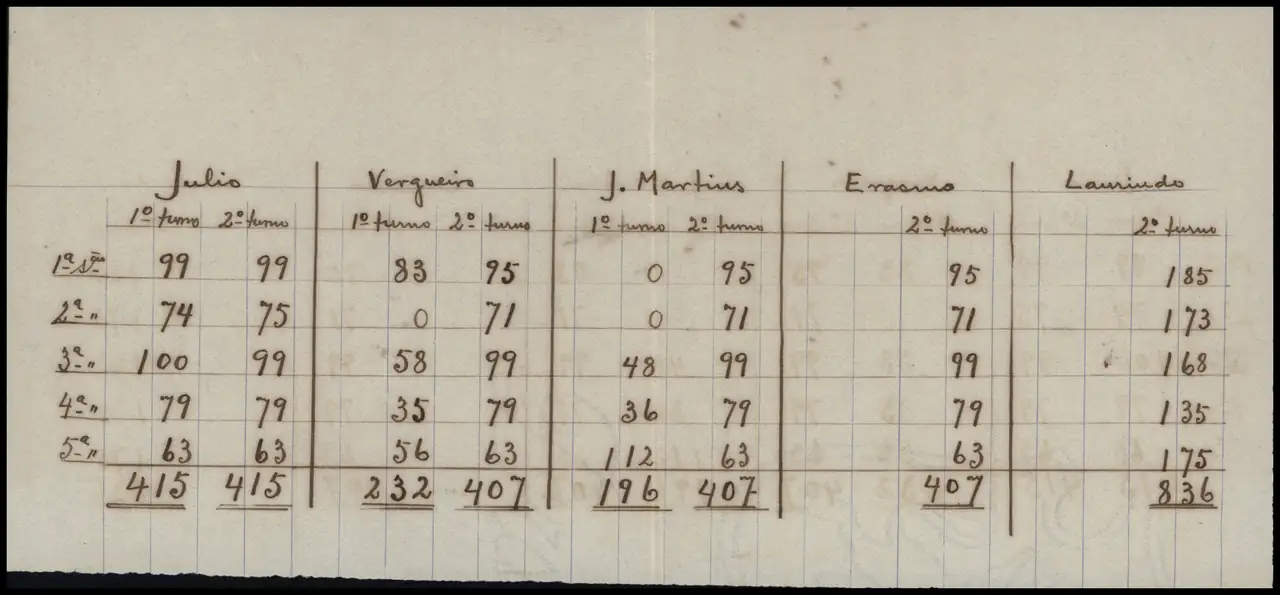 Julio Vergueiro J. Martins Erasmo Laurindo
1º turno 2º turno 1º turno 2º turno 1º turno 2º turno 2º turno 2º turno
1ª 99 99 83 95 0 95 95 185
2ª " 74 75 0 71 0 71 71 173
3ª " 100 99 58 99 48 99 99 168
4ª " 79 79 35 79 36 79 79 135
5ª " 63 63 56 63 112 63 63 175
415 415 232 407 196 407 407 836